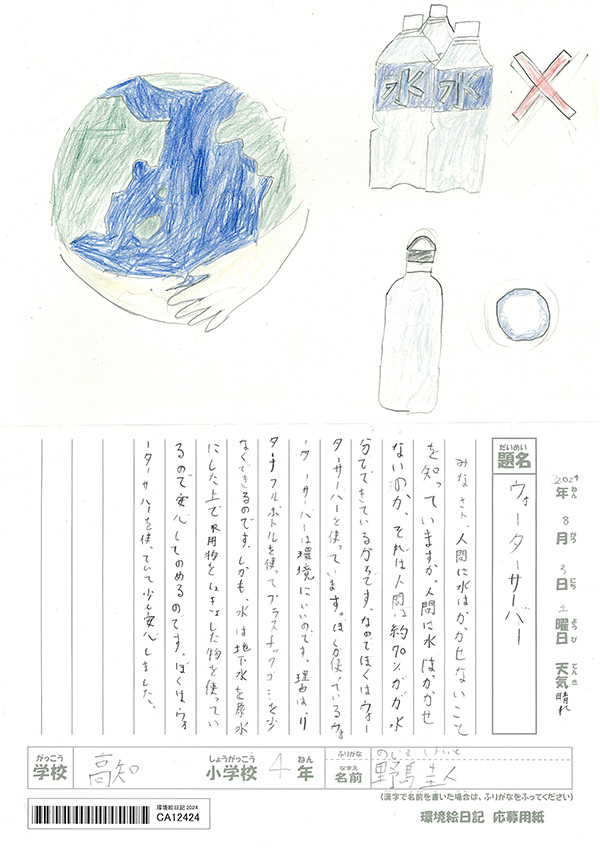 水 水
だいめい
題名 ウォーターサーバー
2024年 8月 3日 土曜日 天気 晴れ
ねん がつ にち ようび てんき
みなさん、人間に水はかかせないこと
を知っていますか。人間に水はかかせ
ないのか、それは人間は約70%が水
分でできているからです。なのでぼくはウォー
ターサーバーを使っています。ぼくが使っているウォ
ーターサーバーは環境にいいのです。理由は、リ
ターナブルボトルを使ってプラスチックゴミを少
なくできるのです。しかも、水は地下水を原水
にした上で不用物を した物を使ってい
るので安心してのめるのです。ぼくはウォ
ーターサーバーを使っていて少し安心しました。
がっこう しょうがっこう ねん ふりがな
学校 高知 小学校 4年 なまえ 名前 野島圭人
(漢字で名前を書いた場合は、ふりがなをふってください)
環境絵日記2024
CA12424
環境絵日記 応募用紙